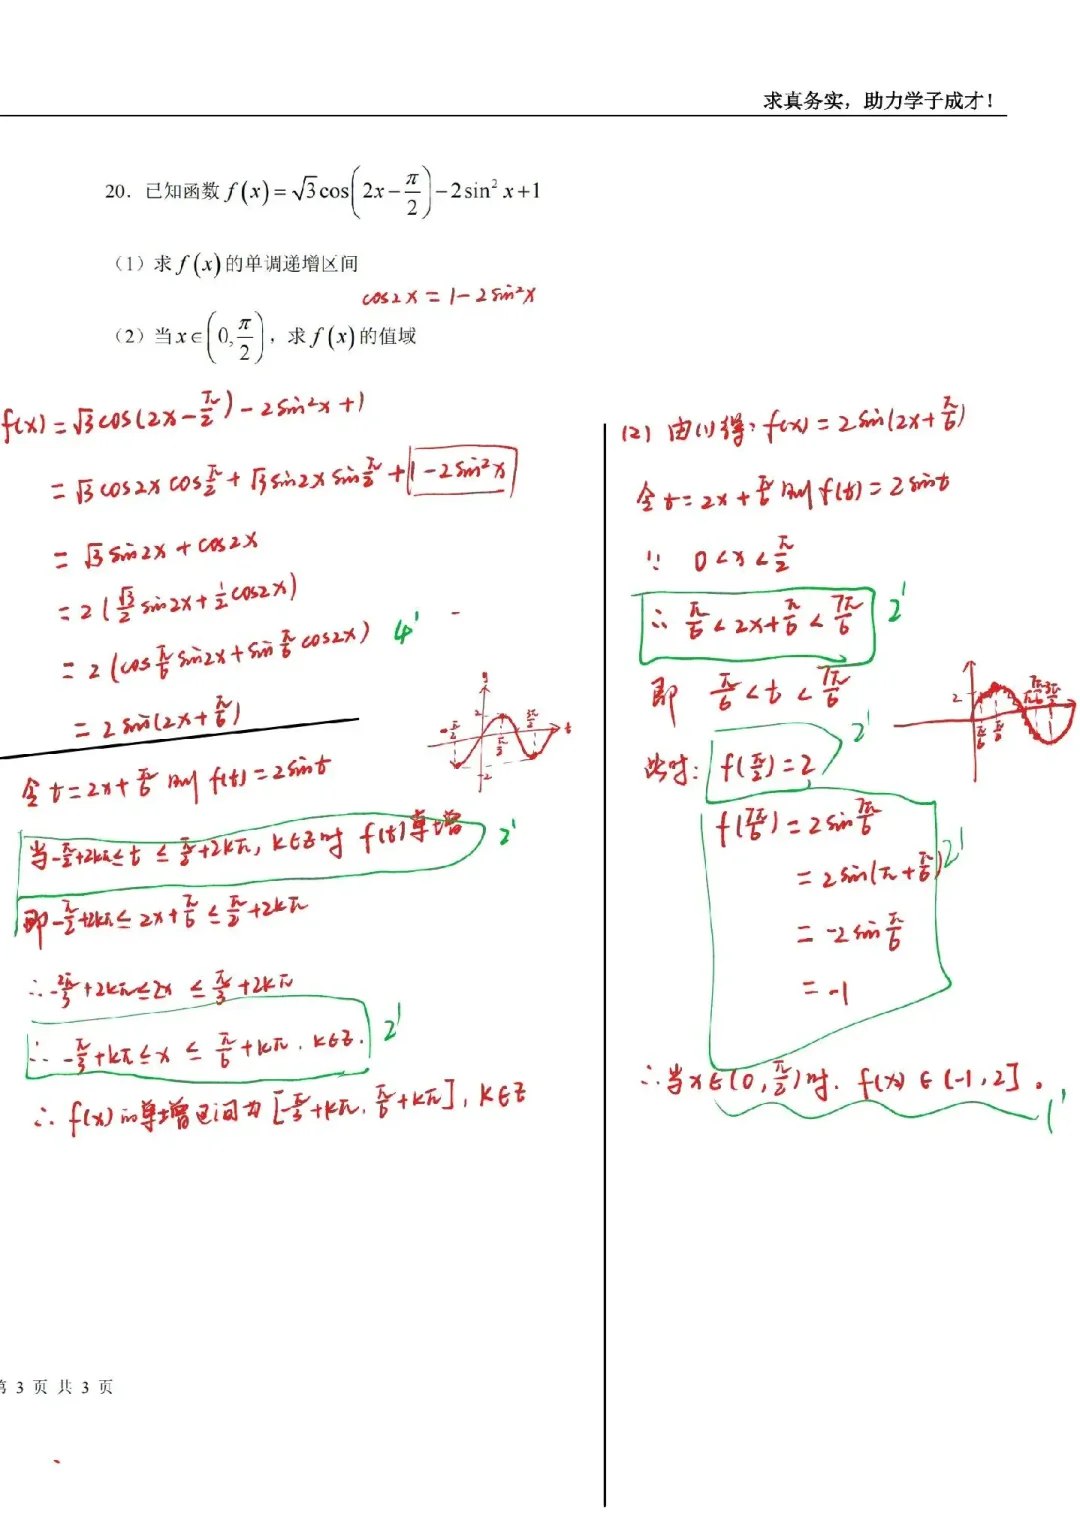 求真务实，助力学子成才！
20．已知函数 f(x)=√3cos(2x−π/2)−2sin²x+1
（1）求 f(x) 的单调递增区间
cos2x = 1−2sin²x
（2）当 x∈(0,π/2)，求 f(x) 的值域
f(x) = √3cos(2x−π/2)−2sin²x+1
= √3cos2x cosπ/2 + √3sin2x sinπ/2 + 1−2sin²x
= √3sin2x + cos2x
= 2(√3/2 sin2x + 1/2 cos2x)
= 2(cosπ/6 sin2x + sinπ/6 cos2x) 4'
= 2sin(2x+π/6)
令 t=2x+π/6 则 f(t)=2sint
当−π/2+2kπ≤t≤π/2+2kπ, k∈Z时 f(t)单增 2'
即−π/2+2kπ≤2x+π/6≤π/2+2kπ
∴−2π/3+2kπ≤2x≤π/3+2kπ
∴−π/3+kπ≤x≤π/6+kπ, k∈Z. 2'
∴f(x)的单增区间为[−π/3+kπ, π/6+kπ], k∈Z
y
2
−π/2
π/2
3π/2
t
−2
(2) 由(1)得: f(x)=2sin(2x+π/6)
令 t=2x+π/6 则 f(t)=2sint
∵ 0<x<π/2
∴ π/6<2x+π/6<7π/6 2'
即 π/6<t<7π/6
2
π/6
π/2
π
7π/6
3π/2
此时: f(π/2)=2 2'
f(7π/6)=2sin7π/6
=2sin(π+π/6) 2'
=−2sinπ/6
=−1
∴当x∈(0,π/2)时, f(x)∈(−1,2]. 1'
第 3 页 共 3 页